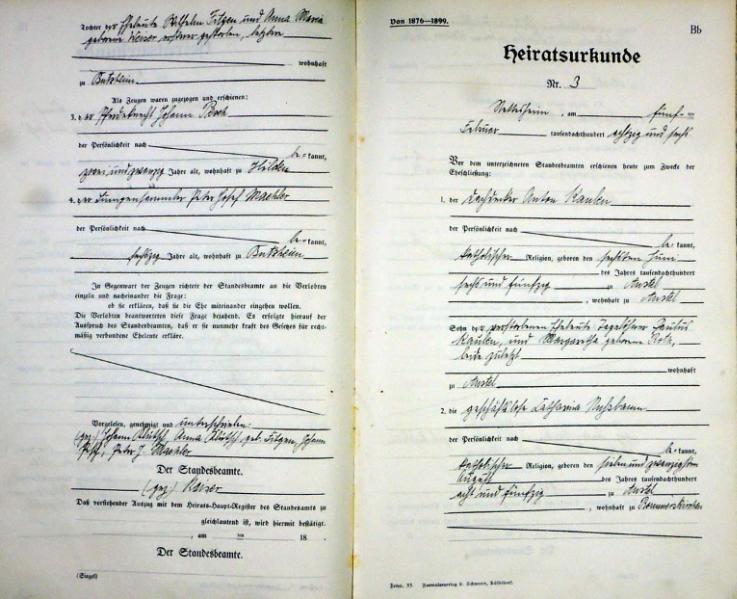 Tochter der Eheleute Wilhelm Titzen und Anna Maria
geborene Keiser ersterer gestorben, letztere
wohnhaft
zu Butzheim
Als Zeugen waren zugezogen und erschienen:
3. der Pferdeknecht Johann
der Persönlichkeit nach
be kannt,
zwei und zwanzig Jahre alt, wohnhaft zu Hilden
4. der Peter Josef Maehler
der Persönlichkeit nach
be kannt,
sechzig Jahre alt, wohnhaft zu Butzheim
In Gegenwart der Zeugen richtete der Standesbeamte an die Verlobten
einzeln und nacheinander die Frage:
ob sie erklären, daß sie die Ehe miteinander eingehen wollen.
Die Verlobten beantworteten diese Frage bejahend. Es erfolgte hierauf der
Ausspruch des Standesbeamten, daß er sie nunmehr kraft des Gesetzes für recht-
mäßig verbundene Eheleute erkläre.
Vorgelesen, genehmigt und unterschrieben
(gez) Johann Anna geb. Titzen, Johann
Peter J. Maehler
Der Standesbeamte.
(gez) Kaiser
Daß vorstehender Auszug mit dem Heirats-Haupt-Register des Standesamts zu
gleichlautend ist, wird hiermit bestätigt.
, am ten 18
Der Standesbeamte.
(Siegel)
Von 1876—1899.
Bb
Heiratsurkunde
Nr. 3
Nettesheim, am fünf-
Februar tausendachthundert achtzig und sechs
Vor dem unterzeichneten Standesbeamten erschienen heute zum Zwecke der
Eheschließung:
1. der Dachdecker Anton Kaulen
der Persönlichkeit nach
be kannt,
katholischer Religion, geboren den sechsten Juni
des Jahres tausendachthundert
sechs und fünfzig zu Anstel
, wohnhaft zu Anstel
Sohn der verstorbenen Eheleute Tagelöhner Paulus
Kaulen, und Margaretha geborene Roth,
beide zuletzt
wohnhaft
zu Anstel
2. die geschäftslose Catharina Nußbaum
der Persönlichkeit nach
be kannt,
katholischer Religion, geboren den sieben und zwanzigsten
August des Jahres tausendachthundert
acht und fünfzig zu Anstel
, wohnhaft zu Rommerskirchen
Form. 55. Formularverlag